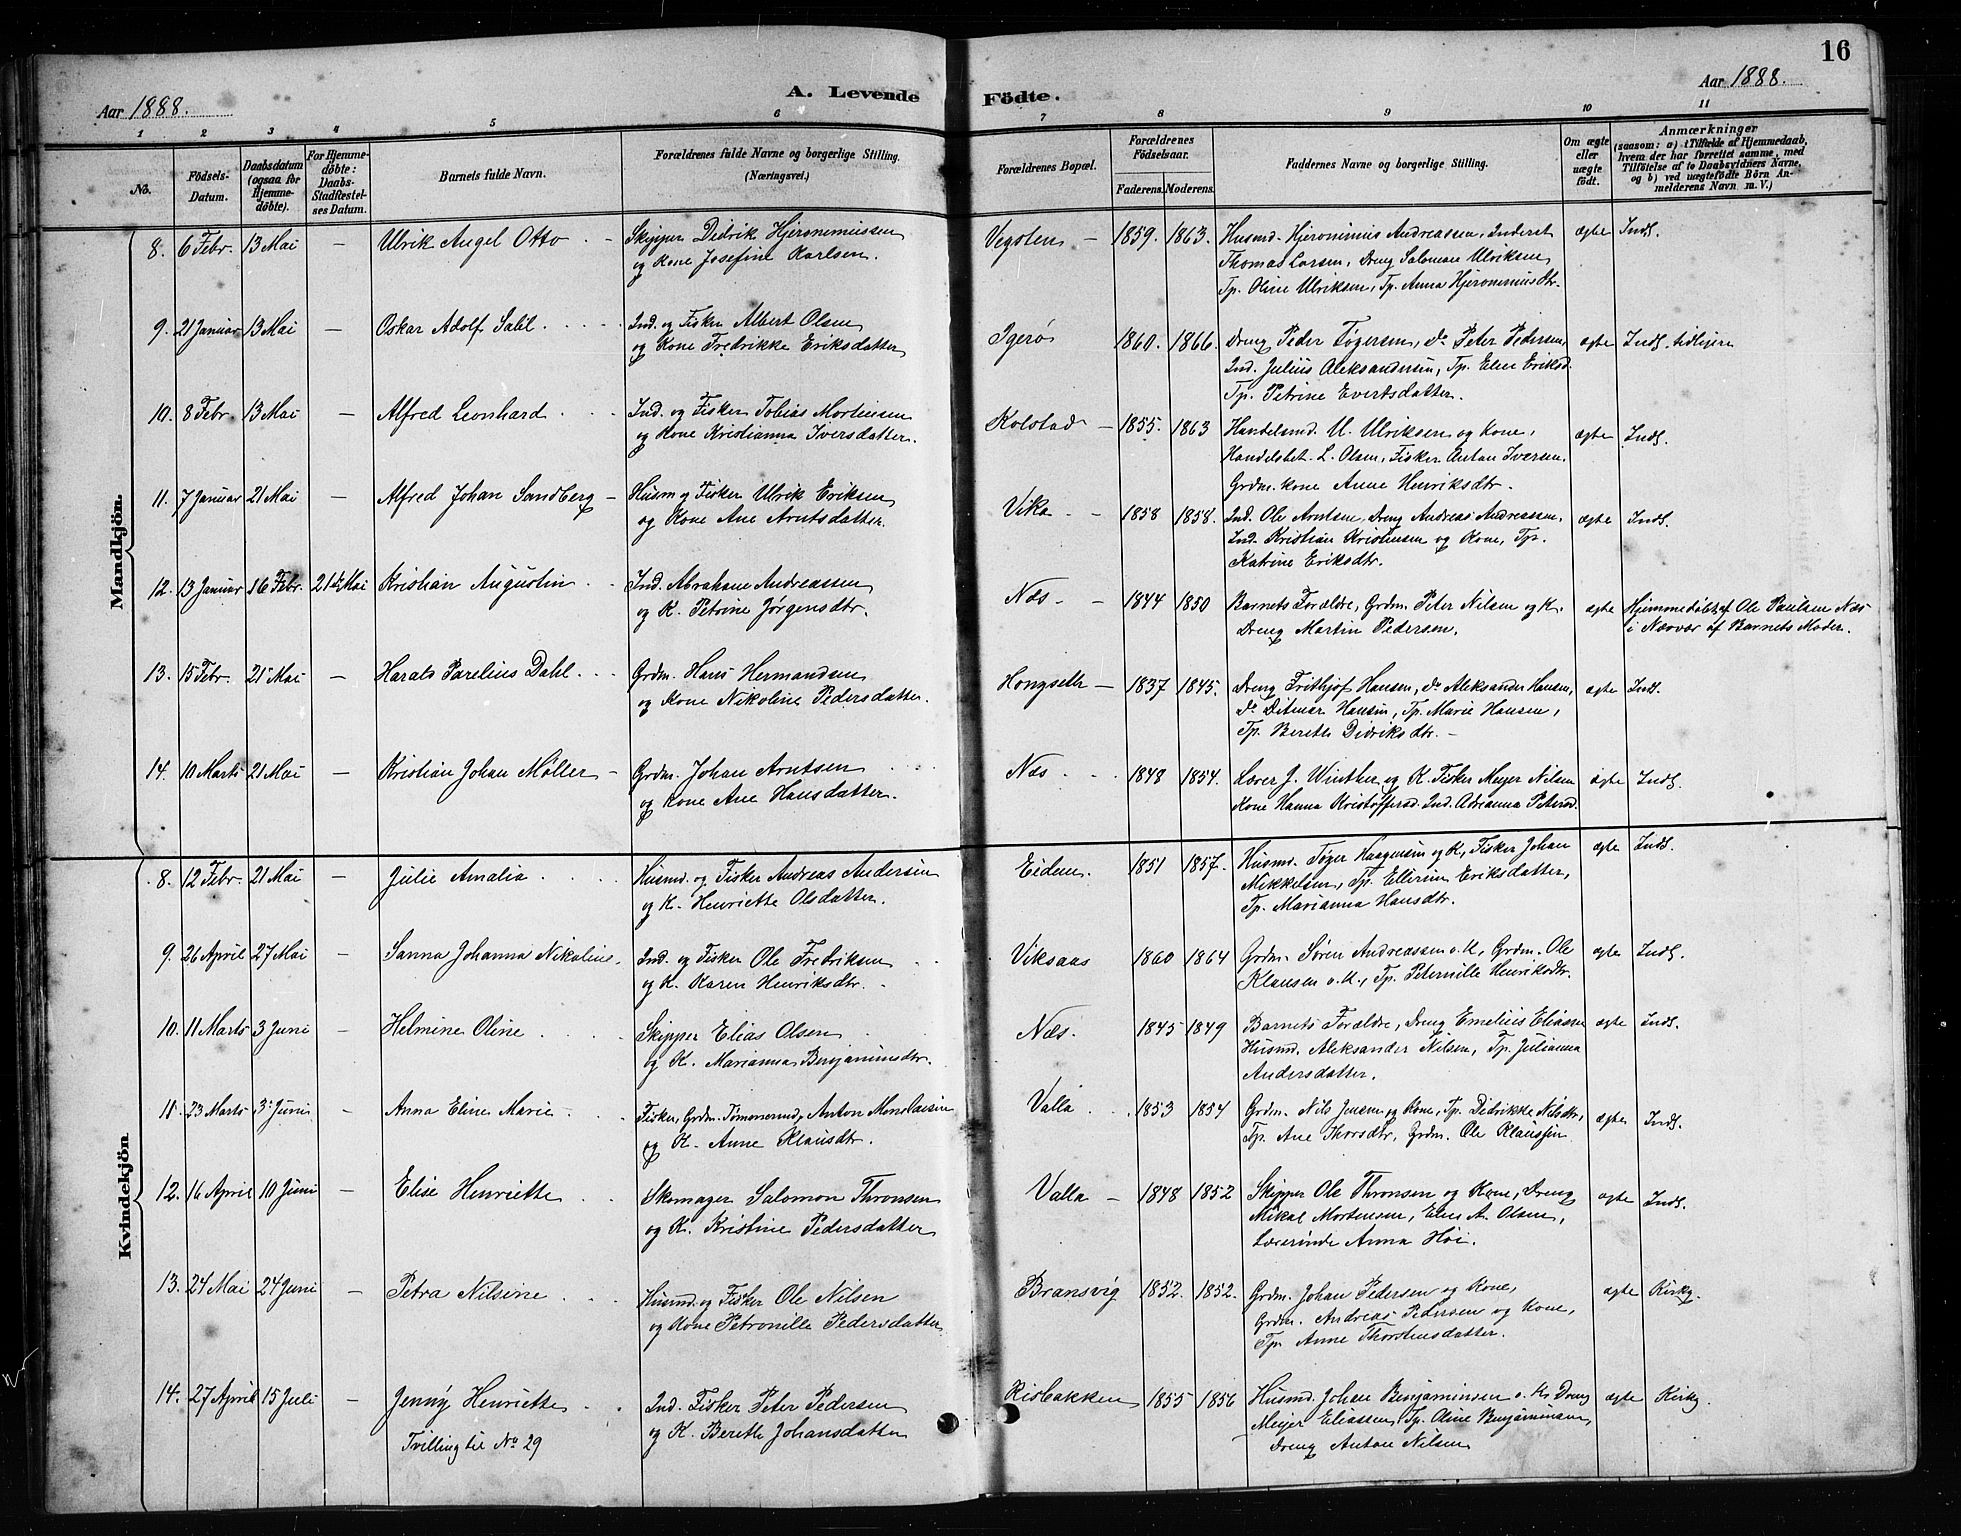 16
Aar 1888.
A. Levende Födte.
Aar 1888.
1 2 3 4 5 6 7 8 9 10 11
No.
Födsels-Datum.
Daabsdatum (ogsaa for Hjemme-döbte).
For Hjemme-döbte: Daabs-Stadfæstel-ses Datum.
Barnets fulde Navn.
Forældrenes fulde Navne og borgerlige Stilling. (Næringsvei.)
Forældrenes Bopæl.
Forældrenes Födselsaar.
Faderens. Moderens.
Faddernes Navne og borgerlige Stilling.
Om ægte eller uægte födt.
Anmærkninger
(saasom: a) i Tilfælde af Hjemmedaab, hvem der har forrettet samme, med Tilföielse af to Daabsvidners Navne, og b) ved uægtefödte Börn An-melderens Navn m. V.)
Mandkjön.
8. 6 Febr. 13 Mai — Ulrik Angel Otto Skipper Didrik Hjeronimussen Vegsten 1859. 1863. Husmd. Hjeronimus Andreassen, Inderet ægte Inds.
og Kone Josefine Karlsen. Thomas Larsen, Dreng Salomon Ulriksen
Tp. Oline Ulriksen, Tp. Anna Hjeronimusdtr.
9. 21 Januar 13 Mai — Oskar Adolf Sabl Ind. og Fisker Albert Olsen Igerø 1860. 1866. Dreng Peder Tøgersen, do Peter Pedersen ægte Inds. tidligere
og Kone Fredrikke Eriksdatter Ind. Julius Aleksandersen, Tp. Elen Eriksd.
Tp. Petrine Evertsdatter.
10. 8 Febr. 13 Mai — Alfred Leonhard Ind. og Fisker Tobias Mortensen Kolstad 1855. 1863 Handelsmd. U. Ulriksen og Kone, ægte Inds.
og Kone Kristianna Iversdatter. Handelsbet. L. Olsen, Fisker Anton Iversen.
Grdm. kone Anne Henriksdtr.
11. 7 Januar 21 Mai — Alfred Johan Sandberg Husm og Fisker Ulrik Eriksen Vika 1858 1858. Ind. Ole Arntsen, Dreng Andreas Andreassen, ægte Inds.
og Kone Ane Arntsdatter. Ind. Kristian Kristensen og Kone, Tp.
Katrine Eriksdtr.
12. 13 Januar 16 Febr. 21de Mai Kristian Augustin Ind. Abraham Andreassen Næs 1844 1850 Barnets Forældre, Grdm. Peter Nilsen og K. ægte Hjemmedøbt af Ole Paulsen Næs
og K. Petrine Jørgensdtr. Dreng Martin Pedersen. i Nærvær af Barnets Moder.
13. 15 Febr. 21 Mai — Harald Parelius Dahl Grdm. Hans Hermandsen Hongseth 1837 1845. Dreng Frithjof Hansen, do Aleksander Hansen, ægte Inds.
og Kone Nikoline Pedersdatter. do Ditmar Hansen, Tp. Marie Hansen,
Tp. Berethe Didriksdtr.
14. 10 Marts 21 Mai — Kristian Johan Møller Grdm. Johan Arntsen Næs 1848 1854. Lærer J. Winther og K. Fisker Meyer Nilsen ægte Inds.
og Kone Ane Hansdatter. Kone Hanna Kristoffersd. Ind. Adrianna Petersd.
Kvindekjön.
8. 12 Febr. 21 Mai — Julie Amalia Husmd. og Fisker Andreas Andersen Eidem. 1851 1857. Husmd. Tøger Haagensen og K., Fisker Johan ægte Inds.
og K. Henriette Olsdatter. Mikkelsen, Tp. Ellerine Eriksdatter,
Tp. Marianna Hansdtr.
9. 26 April 27 Mai — Sanna Johanna Nikoline Ind. og Fisker Ole Fredriksen Viksaas 1860 1864 Grdm. Søren Andreassen o. K., Grdm. Ole ægte Inds.
og K. Karen Henriksdtr. Klausen o. K., Tp. Peternille Henriksdtr.
10. 11 Marts 3 Juni — Helmine Oline Skipper Elias Olsen Næs. 1845 1849 Barnets Forældre, Dreng Emelius Eliassen ægte Inds.
og K. Marianna Benjaminsdtr. Husmd. Aleksander Nilsen, Tp. Julianna
Andersdatter.
11. 23 Marts 3 Juni — Anna Eline Marie Fisker, Grdm. Tømmermd. Anton Monclausen Valla 1853 1854 Grdm. Nils Jensen og Kone, Tp. Didrikke Nilsdtr, ægte Inds.
og K. Anne Klausdtr. Tp. Ane Thorsdtr, Grdm. Ole Klaussen
12. 16 April 10 Juni — Elise Henriette Skomager Salomon Thronsen Valla 1848 1852 Skipper Ole Thronsen og Kone, Dreng ægte Inds.
og K. Kristine Pedersdatter Mikal Mortensen, Elen A. Olsen,
Lærerinde Anna Høi.
13. 24 Mai 24 Juni — Petra Nilsine Husmd. og Fisker Ole Nilsen Bransvig 1852. 1852. Grdm. Johan Pedersen og Kone, ægte Kirkg.
og Kone Petronille Pedersdatter Grdm. Andreas Pedersen og Kone,
Tp. Anne Thorstensdatter.
14. 27 April 15 Juli — Jenny Henriette Ind. Fisker Peter Pedersen Risbakken 1855 1856 Husmd. Johan Benjaminsen o. K. Dreng ægte Kirkg.
Tvilling til No 29 og K. Berethe Johansdatter Meyer Eliassen, Tp. Oline Benjaminsen
Dreng Anton Nilsen